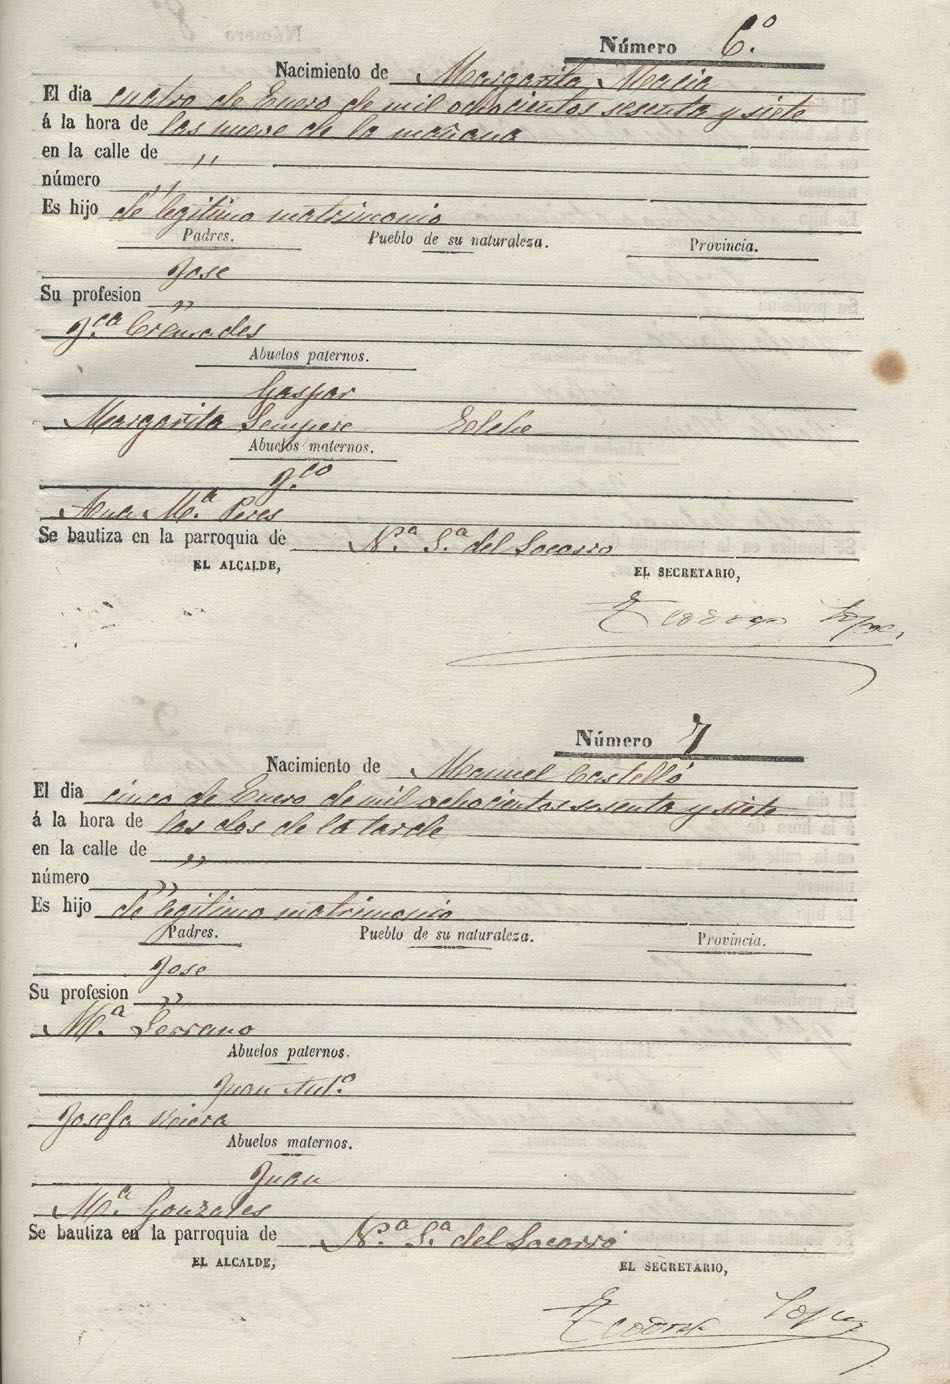 Número 6.º
Nacimiento de Margarita Macia
El dia cuatro de Enero de mil ochocientos sesenta y siete
á la hora de las nueve de la mañana
en la calle de "
número "
Es hijo de legitimo matrimonio
Padres. Pueblo de su naturaleza. Provincia.
Jose
Su profesion "
F.ca Cremades
Abuelos paternos.
Gaspar
Margarita Sempere Elche
Abuelos maternos.
F.co
Ana M.a Peres
Se bautiza en la parroquia de N.a S.a del Socorro
EL ALCALDE, EL SECRETARIO,
Teodoro Lopez
Número 7
Nacimiento de Manuel Castelló
El dia cinco de Enero de mil ochocientos sesenta y siete
á la hora de las dos de la tarde
en la calle de "
número "
Es hijo de legitimo matrimonio
Padres. Pueblo de su naturaleza. Provincia.
Jose
Su profesion "
M.a Serrano
Abuelos paternos.
Juan Ant.o
Josefa Riera
Abuelos maternos.
Juan
M.a Gonzales
Se bautiza en la parroquia de N.a S.a del Socorro
EL ALCALDE, EL SECRETARIO,
Teodoro Lopez